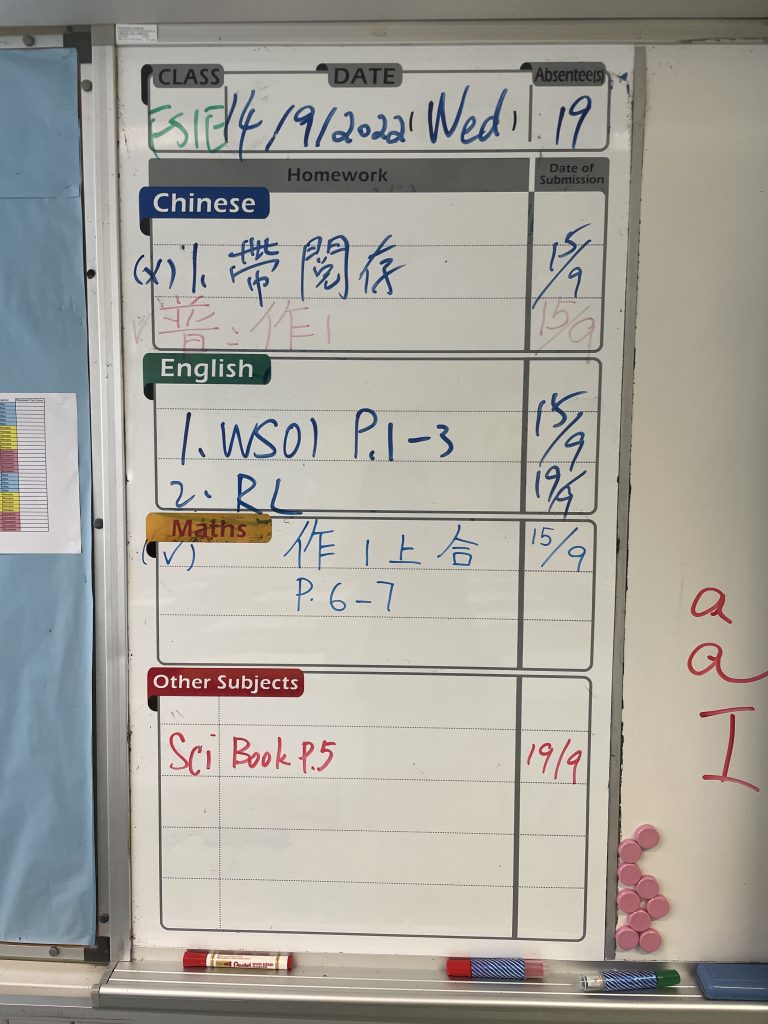 CLASS DATE Absentee(s)
14/9/2022 (Wed) 19
Homework Date of Submission
Chinese
(x) 1. 帶閱存 15/9
普:作1 15/9
English
1. WS01 P.1-3 15/9
2. RL 19/9
Maths
(✓) 作1上合 15/9
P.6-7
Other Subjects
Sci Book P.5 19/9
a
a
I